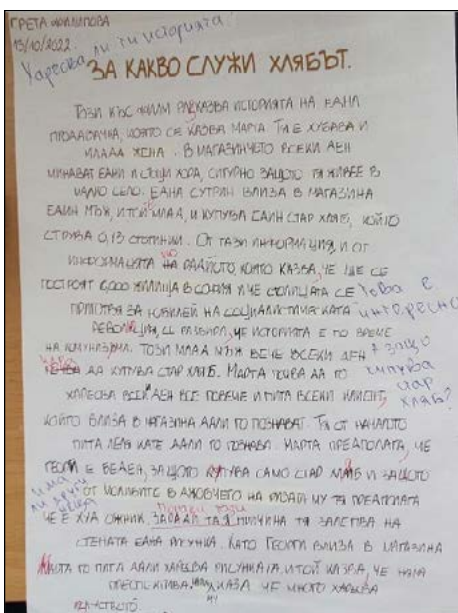 ГРЕТА ФИЛИПОВА
13/10/2022
Харесва ли ти историята?
ЗА КАКВО СЛУЖИ ХЛЯБЪТ.
ТОЗИ КЪС ФИЛМ РАЗКАЗВА ИСТОРИЯТА НА ЕДНА
ПРОДАВАЧКА, КОЯТО СЕ КАЗВА МАРТА. ТЯ Е ХУБАВА И
МЛАДА ЖЕНА. В МАГАЗИНЧЕТО ВСЕКИ ДЕН
МИНАВАТ ЕДНИ И СЪЩИ ХОРА, СИГУРНО ЗАЩОТО ТЯ ЖИВЕЕ В
СЕЛО. ЕДНА СУТРИН ВЛИЗА В МАГАЗИНА
ЕДИН МЪЖ, И ТОЙ МЛАД, И КУПУВА ЕДИН СТАР ХЛЯБ, КОЙТО
СТРУВА 0,13 СТОТИНКИ. ОТ ТАЗИ ИНФОРМАЦИЯ, И ОТ
ИНФОРМАЦИЯТА НА ПО РАДИОТО, КОЯТО КАЗВА, ЧЕ ЩЕ СЕ
ПОСТРОЯТ ЖИЛИЩА В СОФИЯ И ЧЕ СТОЛИЦАТА СЕ
ПРИГОТВЯ ЗА ЮБИЛЕЙ НА СОЦИАЛИСТИЧЕСКАТА
РЕВОЛЮЦИЯ, СЕ РАЗБИРА, ЧЕ ИСТОРИЯТА Е ПО ВРЕМЕ
НА КОМУНИЗЪМА. ТОЗИ МЛАД МЪЖ ВЕЧЕ ВСЕКИ ДЕН
ДА КУПУВА СТАР ХЛЯБ. МАРТА ДА ГО
ХАРЕСВА ВСЕКИ ДЕН ВСЕ ПОВЕЧЕ И ПИТА ВСЕКИ КЛИЕНТ,
КОЙТО ВЛИЗА В МАГАЗИНА ДАЛИ ГО ПОЗНАВАТ. ТЯ ОТ НАЧАЛОТО
ПИТА ЛЕЛЯ КАТЕ ДАЛИ ГО ПОЗНАВА. МАРТА ПРЕДПОЛАГА, ЧЕ
ГЕОРГИ Е БЕДЕН, ЗАЩОТО КУПУВА САМО СТАР ХЛЯБ И ЗАЩОТО
ОТ МОЛИВИТЕ В ДЖОБЧЕТО НА РИЗАТА МУ ТЯ ПРЕДПОЛАГА
ЧЕ Е ХУДОЖНИК. ЗАРАДИ ТАЗИ ПРИЧИНА ТЯ ЗАЛЕПВА НА
СТЕНАТА ЕДНА РИСУНКА. КАТО ГЕОРГИ ВЛИЗА В МАГАЗИНА
МАРТА ГО ПИТА ДАЛИ ХАРЕСВА РИСУНКАТА, И ТОЙ КАЗВА, ЧЕ НЯМА
ПЕРСПЕКТИВА. КАЗА ЧЕ МНОГО ХАРЕСВА
Това е
интересно
защо
купува
стар
хляб?
има
ли други
неща